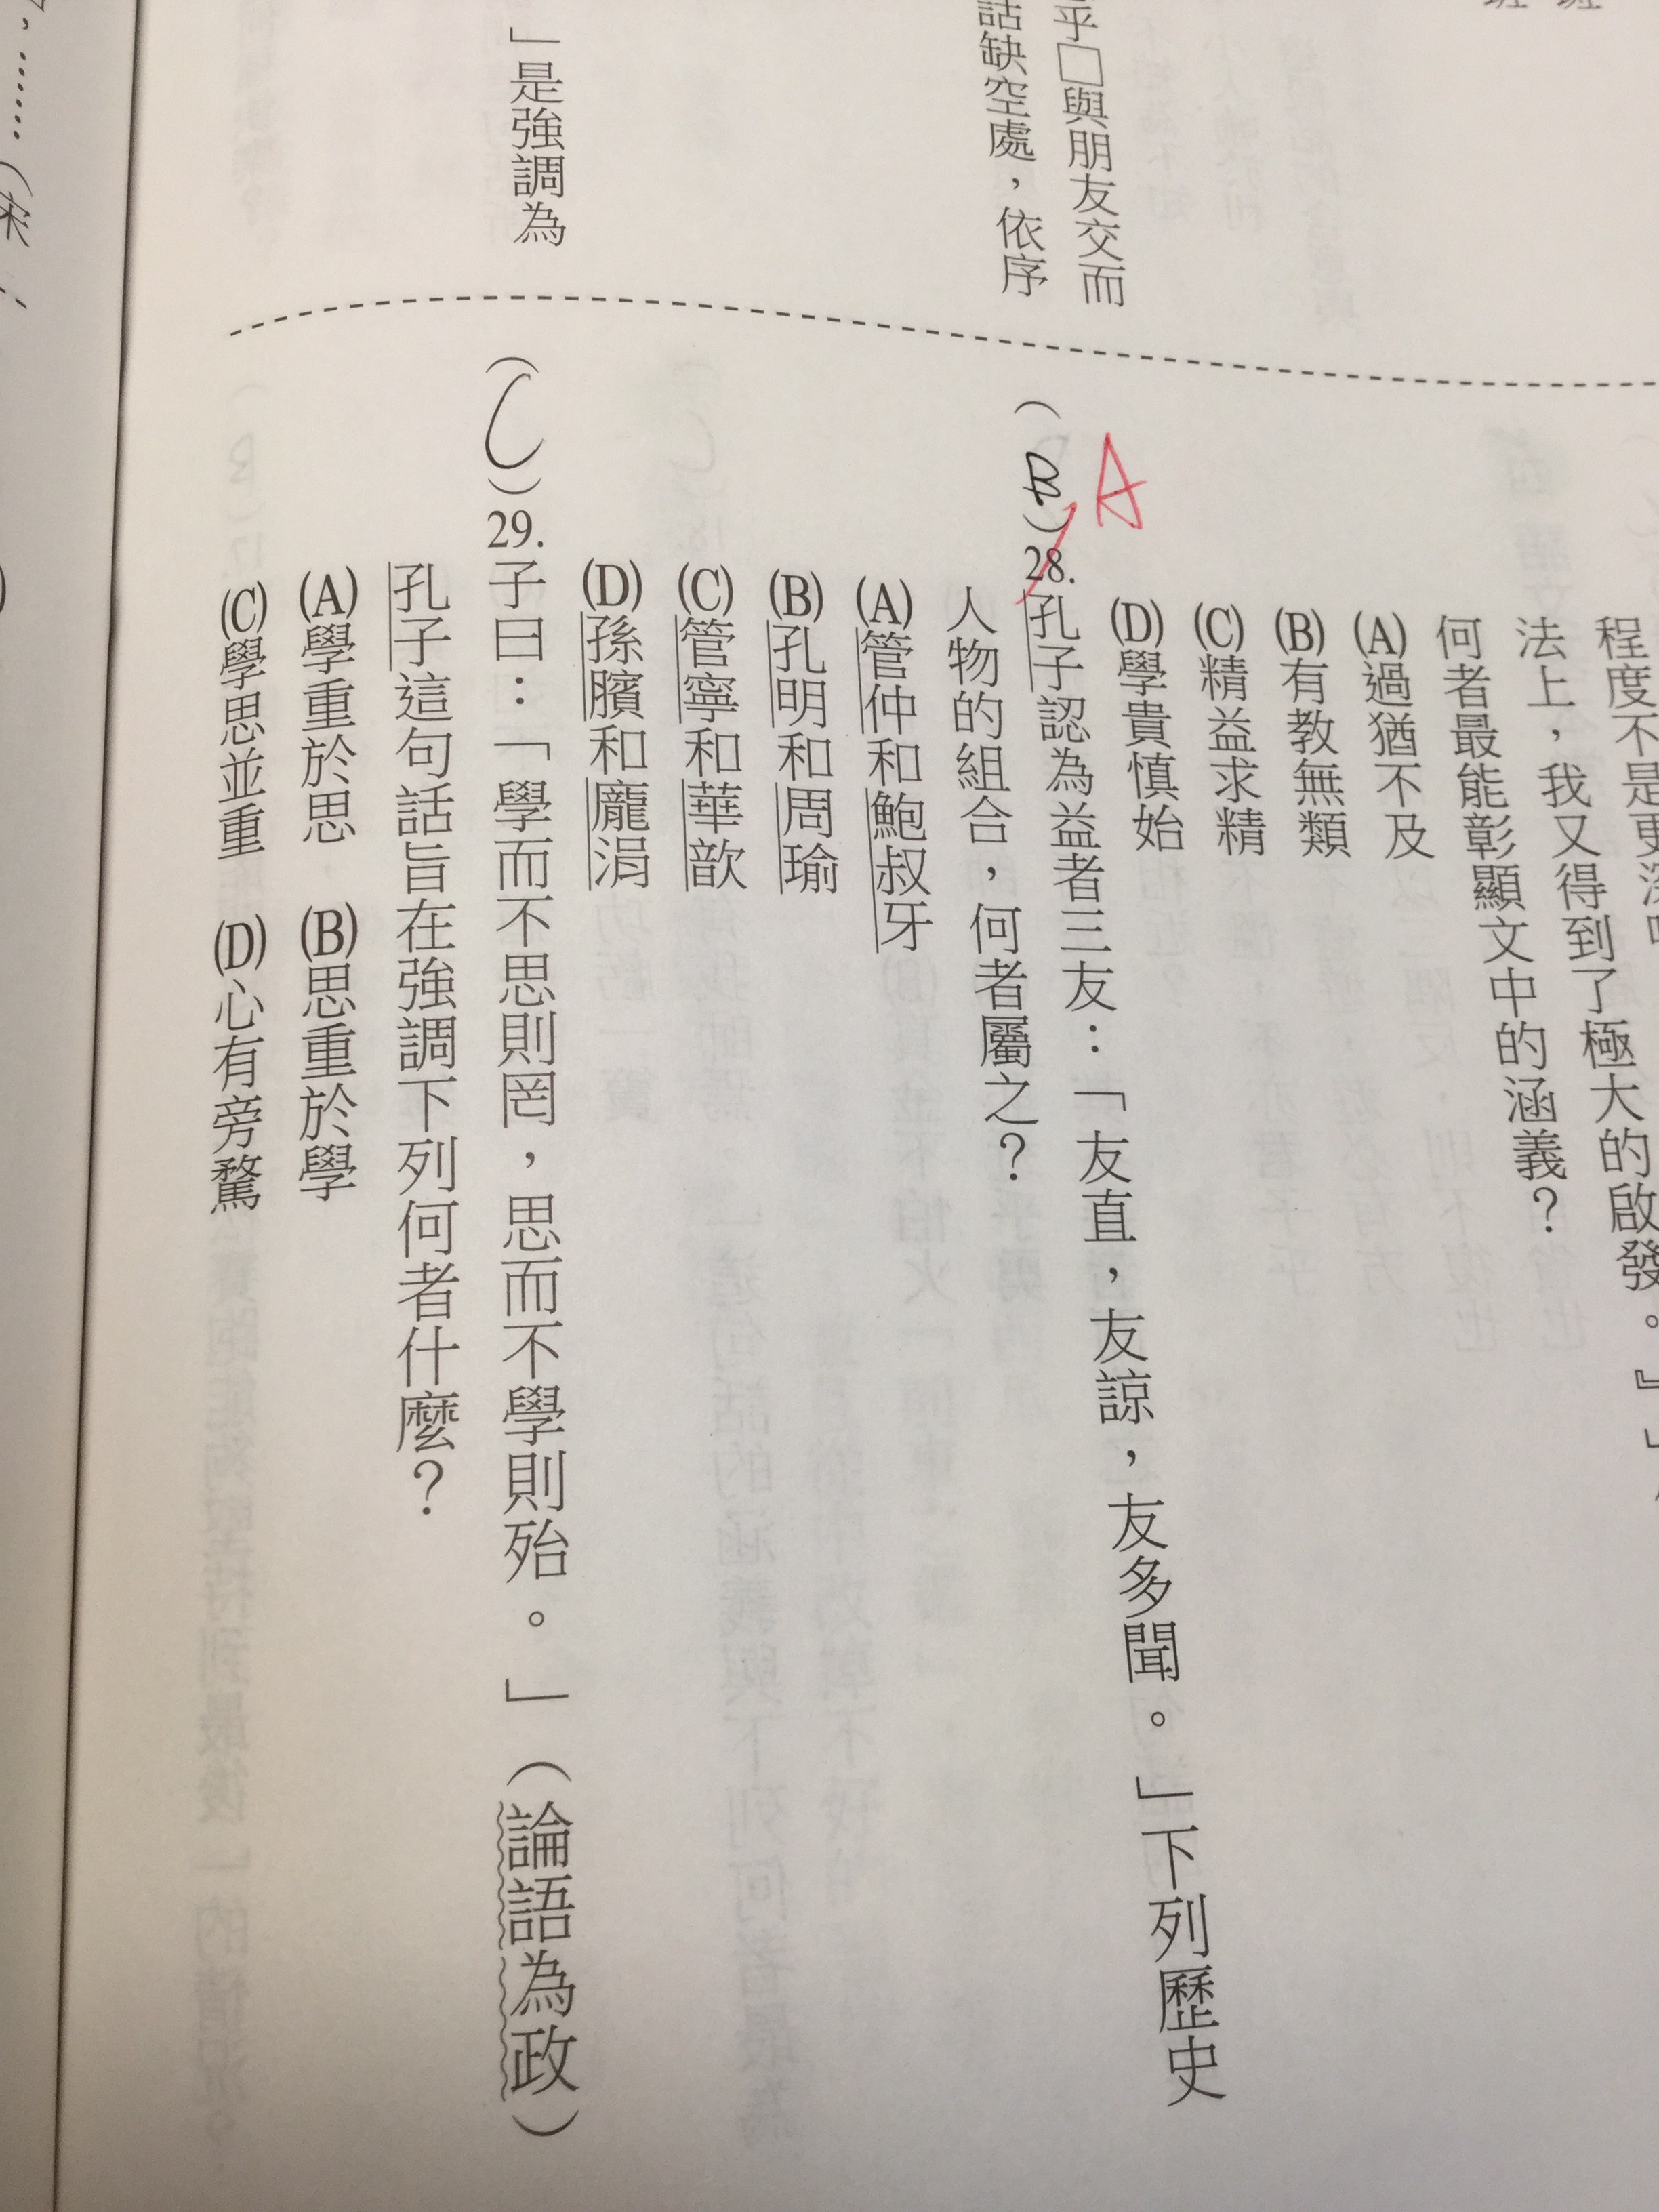 程度不是更深
法上，我又得到了極大的啟發。』」
何者最能彰顯文中的涵義？
(A)過猶不及
(B)有教無類
(C)精益求精
(D)學貴慎始
A
(B)28.孔子認為益者三友：「友直，友諒，友多聞。」下列歷史
人物的組合，何者屬之？
(A)管仲和鮑叔牙
(B)孔明和周瑜
(C)管寧和華歆
(D)孫臏和龐涓
(C)29.子曰：「學而不思則罔，思而不學則殆。」（論語為政）
孔子這句話旨在強調下列何者什麼？
(A)學重於思 (B)思重於學
(C)學思並重 (D)心有旁騖
乎□與朋友交而
話缺空處，依序
」是強調為